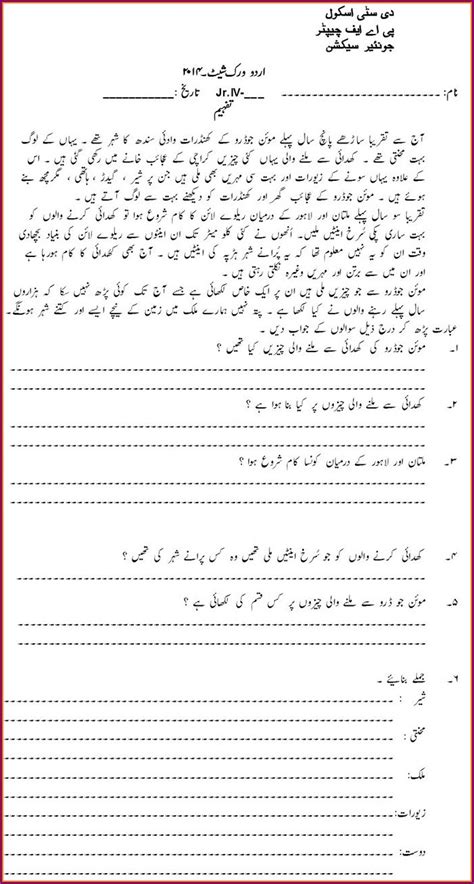 دی سٹی اسکول
پی اے ایف چیپٹر
جونئیر سیکشن
اردو ورک شیٹ۔۲۰۱۴
نام: ____________________ Jr.IV-___ تاریخ :___________
تفہیم
آج سے تقریبا ساڑھے پانچ سال پہلے موئن جوڈرو کے کھنڈرات وادئی سندھ کا شہر تھے ۔ یہاں کے لوگ
بہت محنتی تھے ۔ کھدائی سے ملنے والی یہاں کئی چیزیں کراچی کے عجائب خانے میں رکھی گئی ہیں ۔ اس
کے علاوہ یہاں سونے کے زیورات اور بہت سی مہریں بھی ملی ہیں جن پر شیر ، گیدڑ ، ہاتھی ، مگرمچھ بنے
ہوئے ہیں ۔ موئن جوڈرو کے عجائب گھر اور کھنڈرات کو دیکھنے بہت سے لوگ آتے ہیں ۔
تقریبا سو سال پہلے ملتان اور لاہور کے درمیان ریلوے لائن کا کام شروع ہوا تو کھدائی کرتے ہوئے
بہت ساری پکی سرخ اینٹیں ملیں۔ اُنھوں نے کئی کلو میٹر تک ان اینٹوں سے ریلوے لائن کی بنیاد بچھادی
وقت ان کو یہ نہیں معلوم تھا کہ یہ پُرانے شہر ہڑپہ کی اینٹیں ہیں ۔ آج بھی کھدائی کا کام ہورہا ہے
اور ان میں سے برتن اور مہریں وغیرہ نکلتی رہتی ہیں ۔
موئن جوڈرو سے جو چیزیں ملی ہیں ان پر ایک خاص لکھائی ہے جسے آج تک کوئی پڑھ نہیں سکا کہ ہزاروں
سال پہلے رہنے والوں نے کیا لکھا ہے ۔ پتہ نہیں ہمارے ملک میں زمین کے نیچے ایسے اور کتنے شہر ہونگے۔
عبارت پڑھ کر درج ذیل سوالوں کے جواب دیں ۔
۱۔ موئن جوڈرو کی کھدائی سے ملنے والی چیزیں کیا تھیں ؟
۲۔ کھدائی سے ملنے والی چیزوں پر کیا بنا ہوا ہے ؟
۳۔ ملتان اور لاہور کے درمیان کونسا کام شروع ہوا ؟
۴۔ کھدائی کرنے والوں کو جو سُرخ اینٹیں ملی تھیں وہ کس پرانے شہر کی تھیں ؟
۵۔ موئن جو ڈرو سے ملنے والی چیزوں پر کس قسم کی لکھائی ہے ؟
۶۔ جملے بنائیے ۔
شیر :
محنتی :
ملک:
زیورات:
دوست: